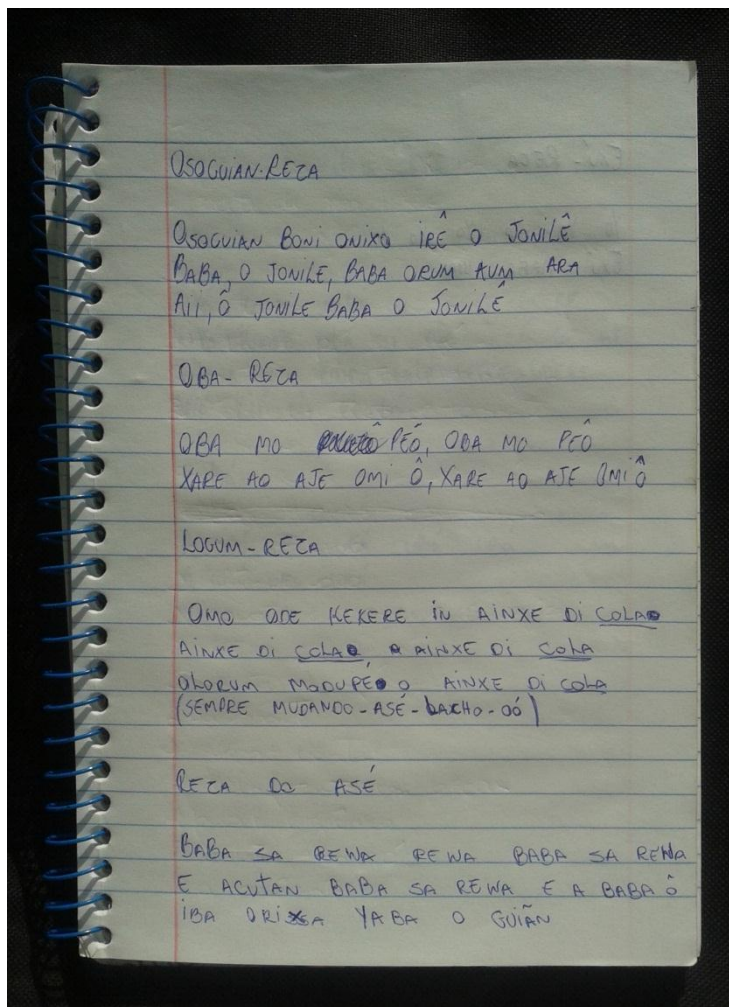 OSOGUIAN-REZA
OSOGUIAN BONI ONIXO IRÊ O JONILÊ
BABA, O JONILE, BABA ORUM AUM ARA
AII, Ô JONILE BABA O JONILÊ
OBA- REZA
OBA MO PÊÓ, OBA MO PÊO
XARE AO AJE OMI Ô, XARE AO AJE OMI Ô
LOGUM-REZA
OMO ODE KEKERE IN AINXE DI COLA
AINXE DI COLA AINXE DI COLA
OLORUM MODUPÉ O AINXE DI COLA
(SEMPRE MUDANDO-ASÉ-BACHO-OÓ)
REZA DO ASÉ
BABA SA REWA REWA BABA SA REWA
E ACUTAN BABA SA REWA E A BABA Ô
IBA ORIXA YABA O GUIÃN